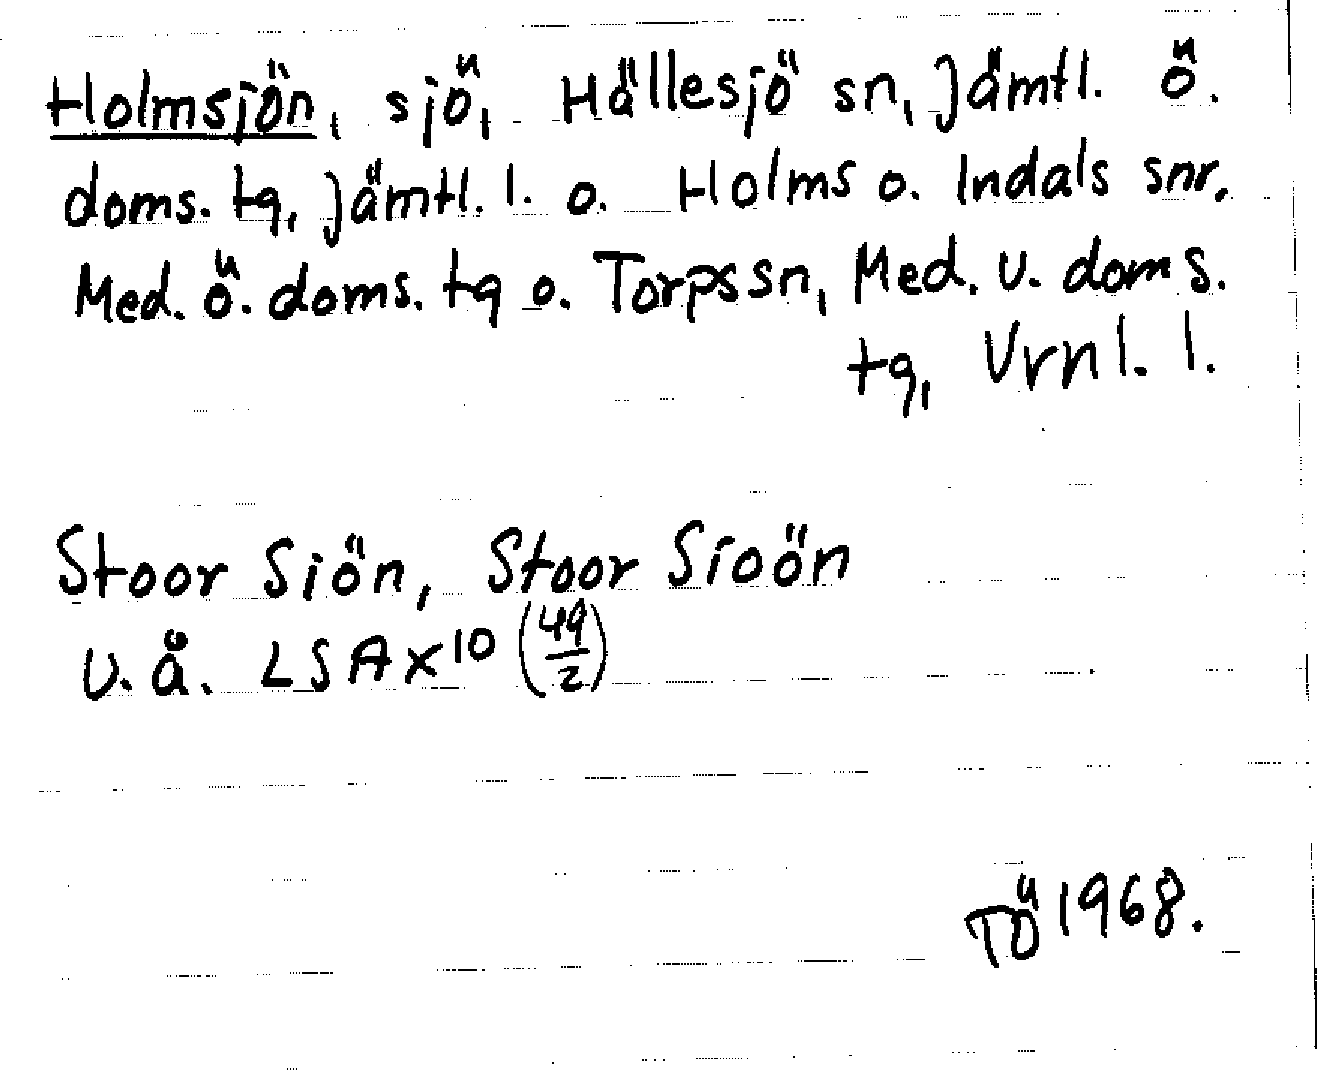 Holmsjön, sjö, Hällesjö sn, Jämtl. ö.
doms. tg, Jämtl. l. o. Holms o. Indals snr,
Med. ö. doms. tg o. Torps sn, Med. v. doms.
tg, Vrnl. l.
Stoor Siön, Stoor Sioön
u.å. LSA X10 (49/2)
TÖ 1968.